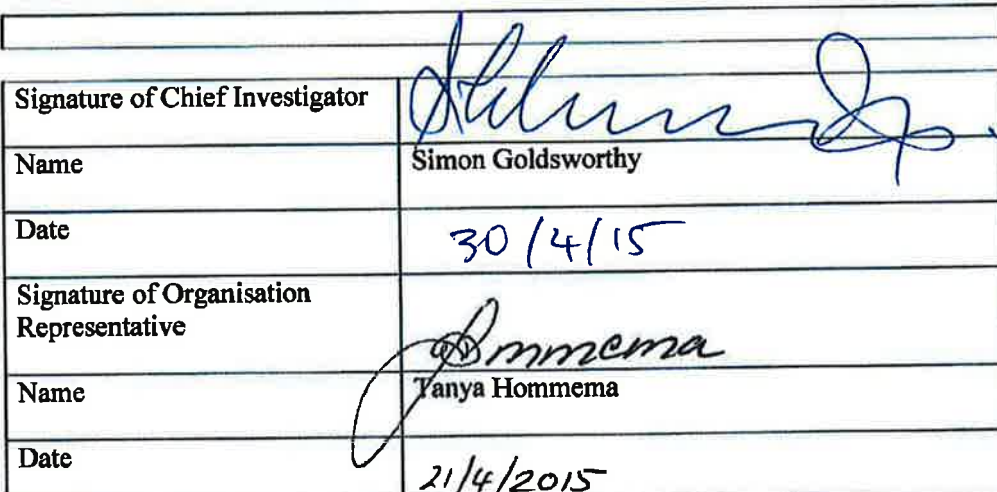 Signature of Chief Investigator
Name Simon Goldsworthy
Date 30/4/15
Signature of Organisation
Representative
Name Tanya Hommema
Date 21/4/2015